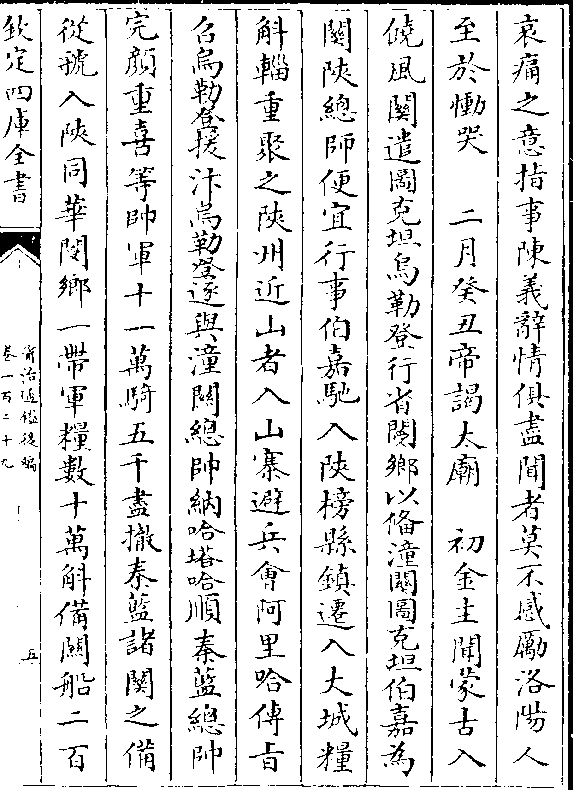 哀痛之意指事陳義辭情俱盡聞者莫不感勵洛陽人
至於慟哭　二月癸丑帝謁太廟　初金主聞蒙古入
饒風關遣圖克坦烏勒登行省閿鄉以備潼關圖克坦伯嘉為
關陝總帥便宜行事伯嘉馳入陝榜縣鎮遷入大城糧
斛輜重聚之陝州近山者入山寨避兵會阿里哈傳旨
召烏勒登援汴烏勒登遂與潼關總帥納哈塔哈順秦藍總帥
完顔重喜等帥軍十一萬騎五千盡撤秦藍諸關之備
從虢入陝同華閿鄉一帶軍糧數十萬斛備關船二百
欽定四庫全書
資治通鑑後編
卷一百三十九
五